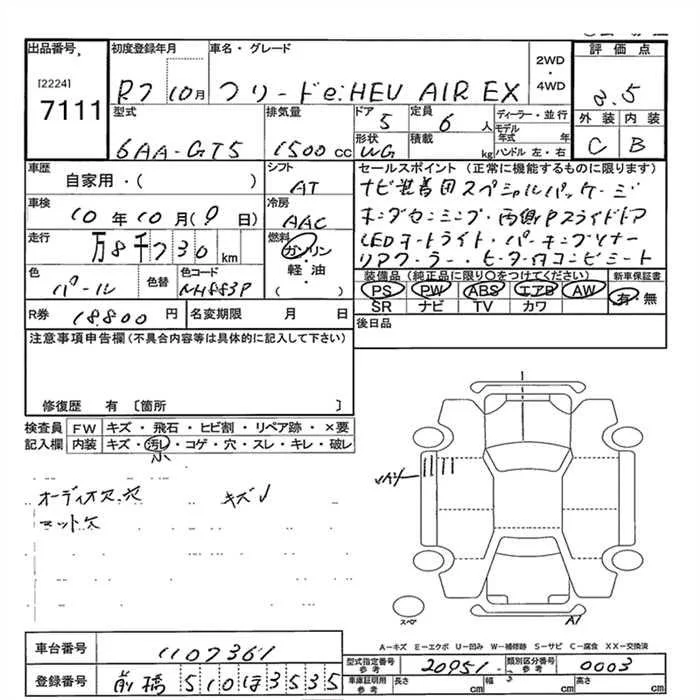 出品番号
[2224]
7111
初度登録年月
R7 10月
車名・グレード
フリードe:HEV AIR EX
2WD
・
4WD
評価点
3.5
外装 内装
C B
型式
6AA-GT5
排気量
1500 cc
ドア
5
形状
WG
定員
6 人
積載
kg
ディーラー・並行
モデル年式 年
ハンドル 左・右
車歴
自家用・( )
車検
10年10月(9日)
走行
万8千730km
色
パール
色替
色コード
NH883P
シフト
AT
冷房
AAC
燃料
ガソリン
・
軽・油
( )
セールスポイント(正常に機能するものに限ります)
ナビ装着用スペシャルパッケージ
ホンダセンシング・両側Pスライドドア
LEDオートライト・パーキングソナー
リアクーラー・ヒーター付コンビシート
装備品(純正品に限り〇をつけてください)
PS PW ABS エアB AW
SR ナビ TV カワ
新車保証書
有・無
R券
18.800 円
名変期限 月 日
後日品
注意事項申告欄(不具合内容等は具体的に記入して下さい)
修復歴 有〔箇所 〕
検査員記入欄
FW キズ・飛石・ヒビ割・リペア跡・×要
内装 キズ・汚レ・コゲ・穴・スレ・キレ・破レ
小
オーディオ欠.穴 キズ小
マット欠
A1
スペア
A-キズ E-エクボ U-凹み W-補修跡 S-サビ C-腐食 XX-交換済
車台番号
1107361
登録番号
前橋 510ほ3535
型式指定番号
参考
20951
類別区分番号
参考
0003
車庫証明用
参考
長さ cm
幅 cm
高さ cm